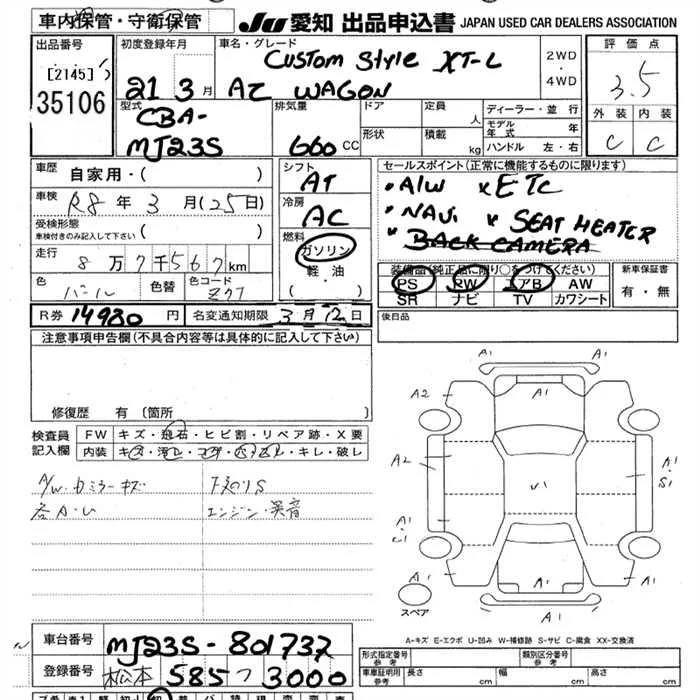 車内保管・守衛保管
JU 愛知 出品申込書 JAPAN USED CAR DEALERS ASSOCIATION
出品番号
[2145]
35106
初度登録年月
21 3月
車名・グレード
CUSTOM Style XT-L
AZ WAGON
2WD・4WD
評価点
3.5
外装 内装
C C
型式
CBA-
MJ23S
排気量
660cc
ドア
形状
定員 人
積載 kg
ディーラー・並行
モデル年式 年
ハンドル 左・右
車歴 自家用・( )
車検 R8年3月(25日)
受検形態
車検付きのみ記入して下さい ( )
走行 8万7千567km
色 パール 色替 色コード ZY7
シフト
AT
冷房
AC
燃料
ガソリン
軽油
( ・ )
セールスポイント(正常に機能するものに限ります)
・A/W × ETC
・NAVi × SEAT HEATER
・BACK CAMERA
装備品(純正品に限り○をつけてください)
PS PW エアB AW
SR ナビ TV カワシート
新車保証書
有・無
R券 14980円 名変通知期限 3月12日
後日品
注意事項申告欄(不具合内容等は具体的に記入して下さい)
修復歴 有(箇所
検査員記入欄
FW キズ・飛石・ヒビ割・リペア跡・X要
内装 キズ・汚レ・コゲ・穴・スレ・キレ・破レ
A/W・カミラーキズ 下廻りS
各A・U エンジン・異音
A1
A2 A1 A1
A2 U1 A1
S1
A1 A1
A1 A1 A1
スペア
A1
A-キズ E-エクボ U-凹み W-補修跡 S-サビ C-腐食 XX-交換済
車台番号 MJ23S-801737
登録番号 松本 585 つ 3000
形式指定番号 参考
類別区分番号 参考
車庫証明用 参考 長さ cm 幅 cm 高さ cm